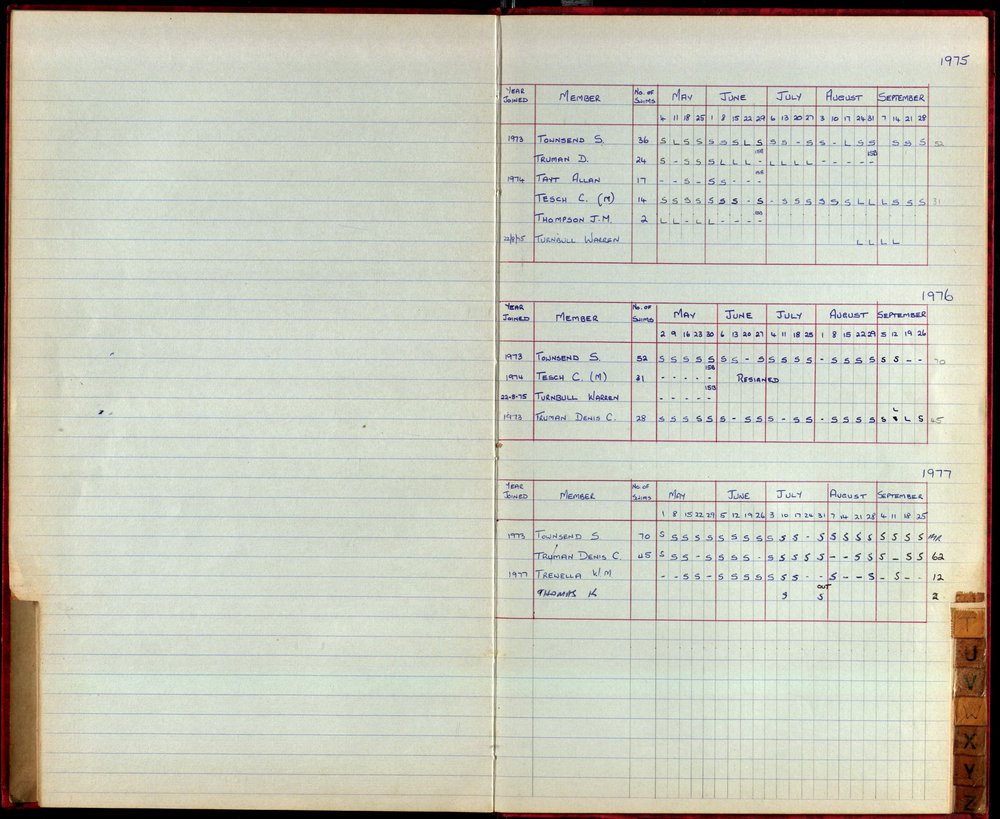 1975
YEAR JOINED MEMBER No. OF SWIMS MAY JUNE JULY AUGUST SEPTEMBER
4 11 18 25 1 8 15 22 29 6 13 20 27 3 10 17 24 31 7 14 21 28
1973 TOWNSEND S. 36 S L S S S S S L S S S - S S - L S S S S S 52
TRUMAN D. 24 S - S S S L L L - L L L L - - - - -
1974 TAYT ALLAN 17 - - S - S S - - -
TESCH C. (M) 14 S S S S S S S - S - S S S S S S L L L S S S 31
THOMPSON J.M. 2 L L - L L - - - -
22/8/75 TURNBULL WARREN L L L L
1976
YEAR JOINED MEMBER No. OF SWIMS MAY JUNE JULY AUGUST SEPTEMBER
2 9 16 23 30 6 13 20 27 4 11 18 25 1 8 15 22 29 5 12 19 26
1973 TOWNSEND S. 52 S S S S S S S - S S S S S - S S S S S S - - 70
1974 TESCH C. (M) 31 - - - - - RESIGNED
22-8-75 TURNBULL WARREN - - - - -
1973 TRUMAN DENIS C. 28 S S S S S S - S S S - S S - S S S S S L S 45
1977
YEAR JOINED MEMBER No. OF SWIMS MAY JUNE JULY AUGUST SEPTEMBER
1 8 15 22 29 5 12 19 26 3 10 17 24 31 7 14 21 28 4 11 18 25
1973 TOWNSEND S. 70 S S S S S S S S S S S S - S S S S S S S S S
TRUMAN DENIS C. 45 S S S - S S S S - S S S S S - - S S S - S S 62
1977 TRENELLA W M - - S S - S S S S S S S - - S - - S - S - - 12
OUT
THOMAS K S S 2
T
U
V
W
X
Y
Z